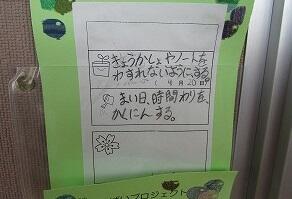 きょうかしょやノートを
わすれないようにする。
(4月20日)
まい日、時間わりを、
かくにんする。
プロジェクト